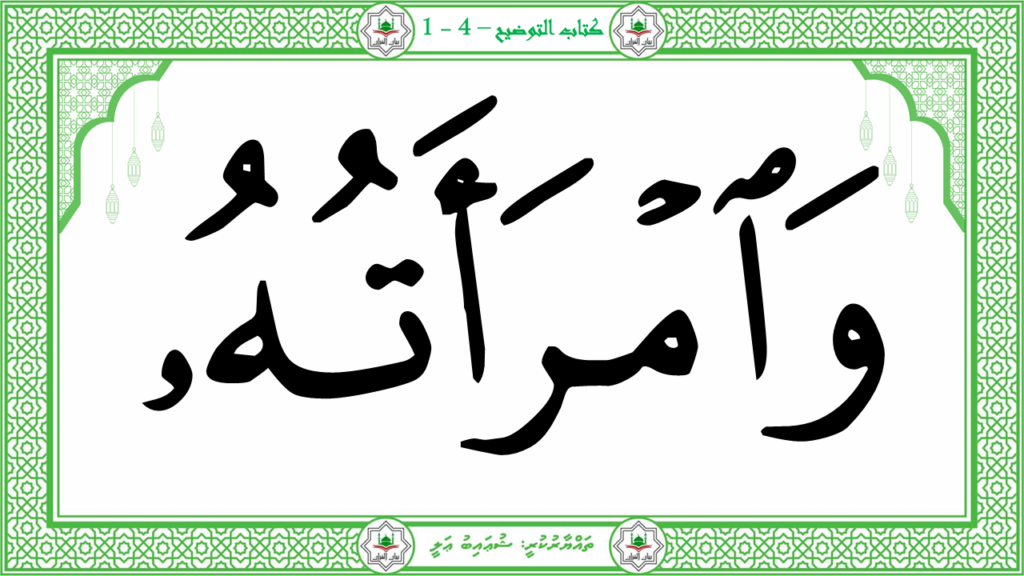 كتاب التوضيح – 4 - 1
وَٱمْرَأَتُهُۥ
ތައްޔާރުކުރީ: ޝުޢައިބު ޢަލީ